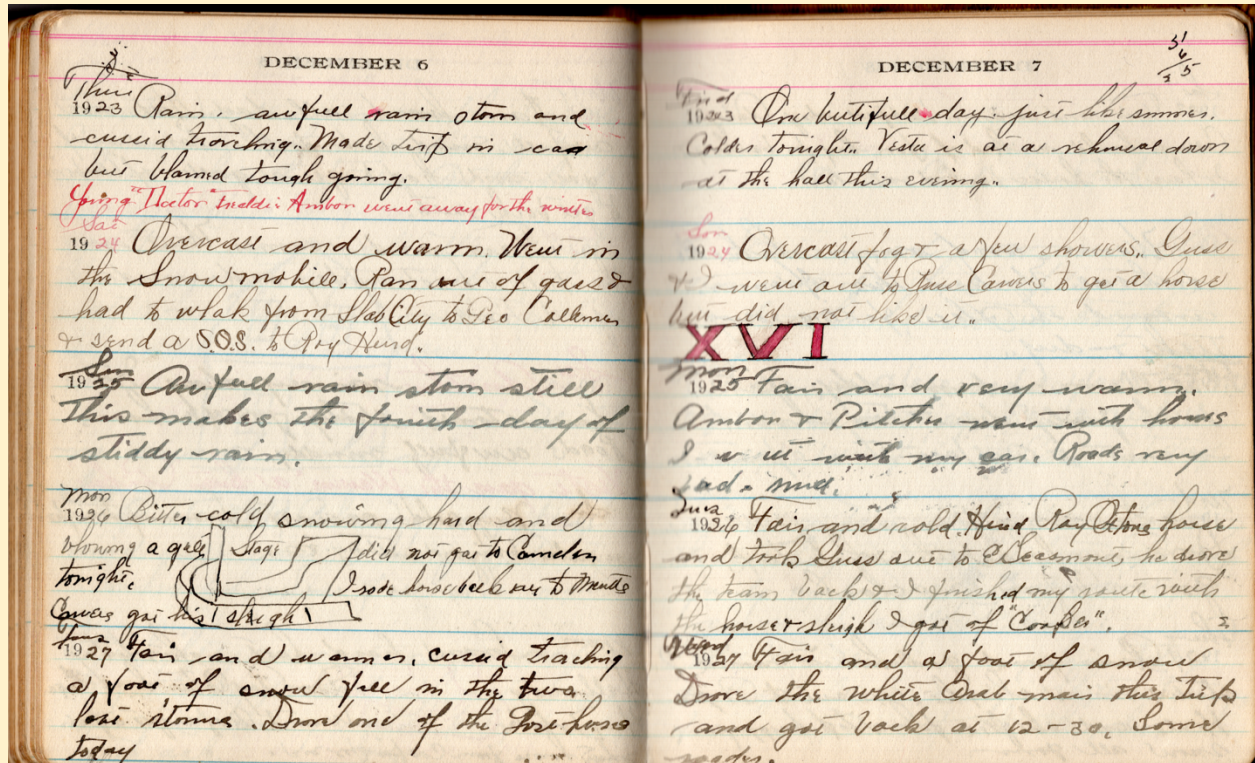 DECEMBER 6
Thur
1923 Rain. awfull rain storm and
cussid traveling. Made trip in car
but blamed tough going.
Young "Doctor" Freddie Ambon went away for the winter
Sat
1924 Overcast and warm. Went in
the Snowmobile. Ran out of gass &
had to wlak from Slab City to Geo Collemer
& send a S.O.S. to Roy Hurd.
Sun
1925 Awfull rain storm still
this makes the fourth day of
stiddy rain.
Mon
1926 Bitter cold snowing hard and
blowing a gale Stage did not go to Camden
tonight. I rode horseback out to
Cavers got his sleigh
1927 Fair and warmer, cussid traching
a foot of snow fell in the two
last storms. Drove one of the Post horses
today
DECEMBER 7
31
6/5
3
Frid
1923 One butifull day just like summer.
Colder tonight. Vesta is at a rehursal down
at the hall this evening.
Son
1924 Overcast fog & a few showers. Guss
& I went out to Cavers to get a horse
but did not like it.
XVI
Mon
1925 Fair and very warm.
Ambon & Pitcher went with horses
I w ut with my car. Roads very
bad & mud.
Tues
1926 Fair and cold. Hired Roy horse
and took Guss out to Beasmont, he drove
the team back & I finished my route with
the horse & sleigh I got of "Cooper". 2
Wed
1927 Fair and a foot of snow
Drove the white Arab mair this trip
and got back at 12-30. Some
roades.